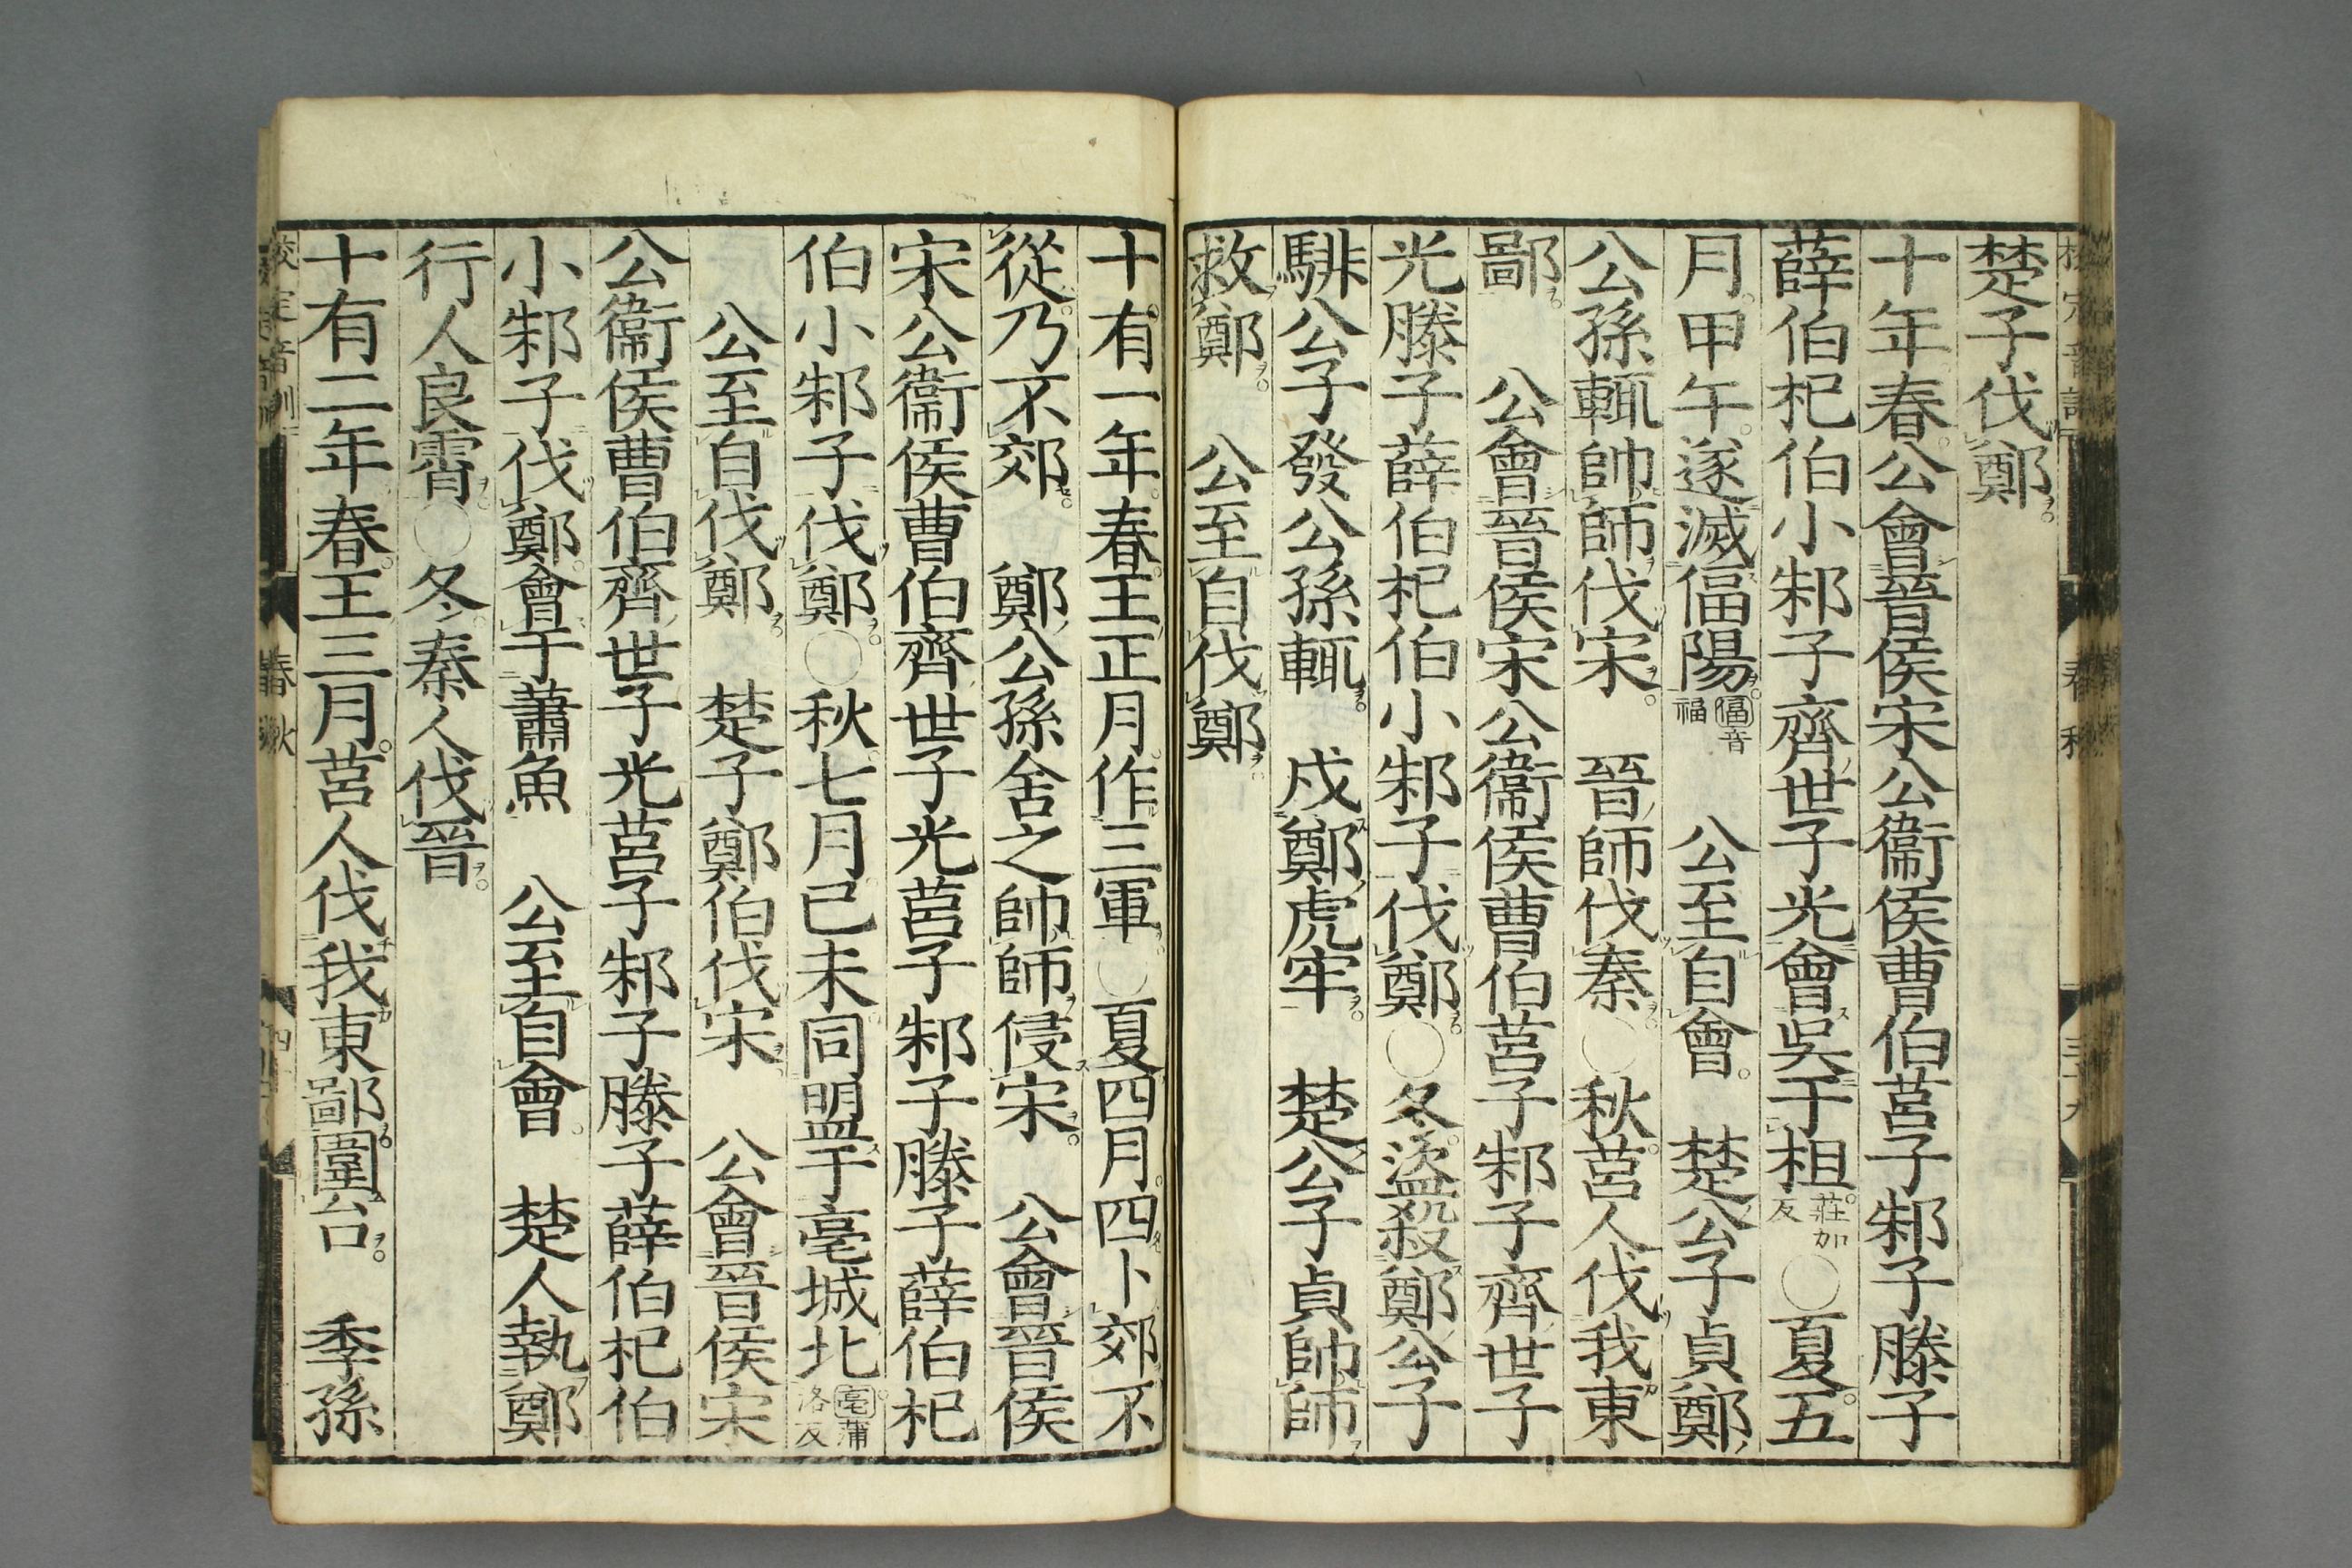 楚子伐鄭
十年春公會晉侯宋公衞侯曹伯莒子邾子滕子
薛伯杞伯小邾子齊世子光會吳于柤莊加反○夏五
月甲午遂滅偪陽偪音福　公至自會　楚公子貞鄭
公孫輒帥師伐宋　晉師伐秦○秋莒人伐我東
鄙　公會晉侯宋公衞侯曹伯莒子邾子齊世子
光滕子薛伯杞伯小邾子伐鄭○冬盜殺鄭公子
騑公子發公孫輒　戍鄭虎牢　楚公子貞帥師
救鄭　公至自伐鄭
十有一年春王正月作三軍○夏四月四卜郊不
從乃不郊　鄭公孫舍之帥師侵宋　公會晉侯
宋公衞侯曹伯齊世子光莒子邾子滕子薛伯杞
伯小邾子伐鄭○秋七月己未同盟于亳城北亳蒲洛反
公至自伐鄭　楚子鄭伯伐宋　公會晉侯宋
公衞侯曹伯齊世子光莒子邾子滕子薛伯杞伯
小邾子伐鄭會于蕭魚　公至自會　楚人執鄭
行人良霄○冬秦人伐晉
十有二年春王三月莒人伐我東鄙圍台　季孫
春秋